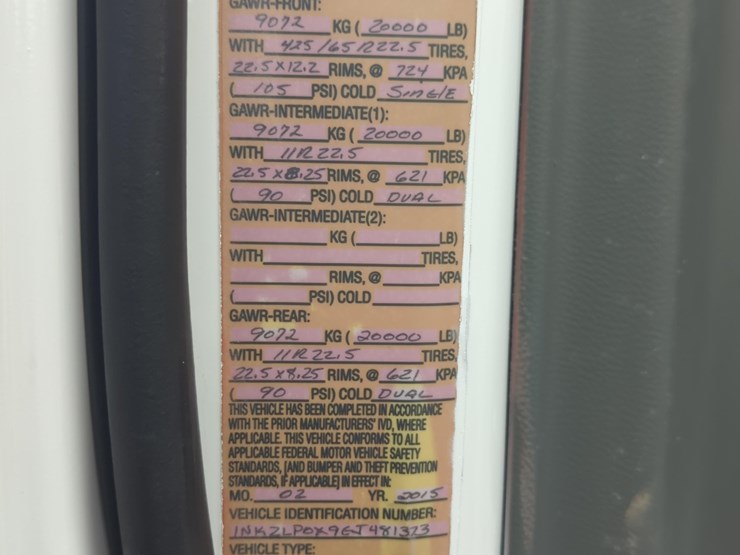 GAWR-FRONT:
9072 KG ( 20000 LB)
WITH 425/65R22.5 TIRES,
22.5X12.2 RIMS, @ 724 KPA
( 105 PSI) COLD SinGlE
GAWR-INTERMEDIATE(1):
9072 KG ( 20000 LB)
WITH 11R22.5 TIRES,
22.5X8.25 RIMS, @ 621 KPA
( 90 PSI) COLD DUAL
GAWR-INTERMEDIATE(2):
KG ( LB)
WITH TIRES,
RIMS, @ KPA
( PSI) COLD
GAWR-REAR:
9072 KG ( 20000 LB)
WITH 11R22.5 TIRES
22.5X8.25 RIMS, @ 621 KPA
( 90 PSI) COLD DUAL
THIS VEHICLE HAS BEEN COMPLETED IN ACCORDANCE
WITH THE PRIOR MANUFACTURERS' IVD, WHERE
APPLICABLE. THIS VEHICLE CONFORMS TO ALL
APPLICABLE FEDERAL MOTOR VEHICLE SAFETY
STANDARDS, [AND BUMPER AND THEFT PREVENTION
STANDARDS, IF APPLICABLE] IN EFFECT IN:
MO. 02 YR. 2015
VEHICLE IDENTIFICATION NUMBER:
1NKZLP0X9GJ481323
VEHICLE TYPE: